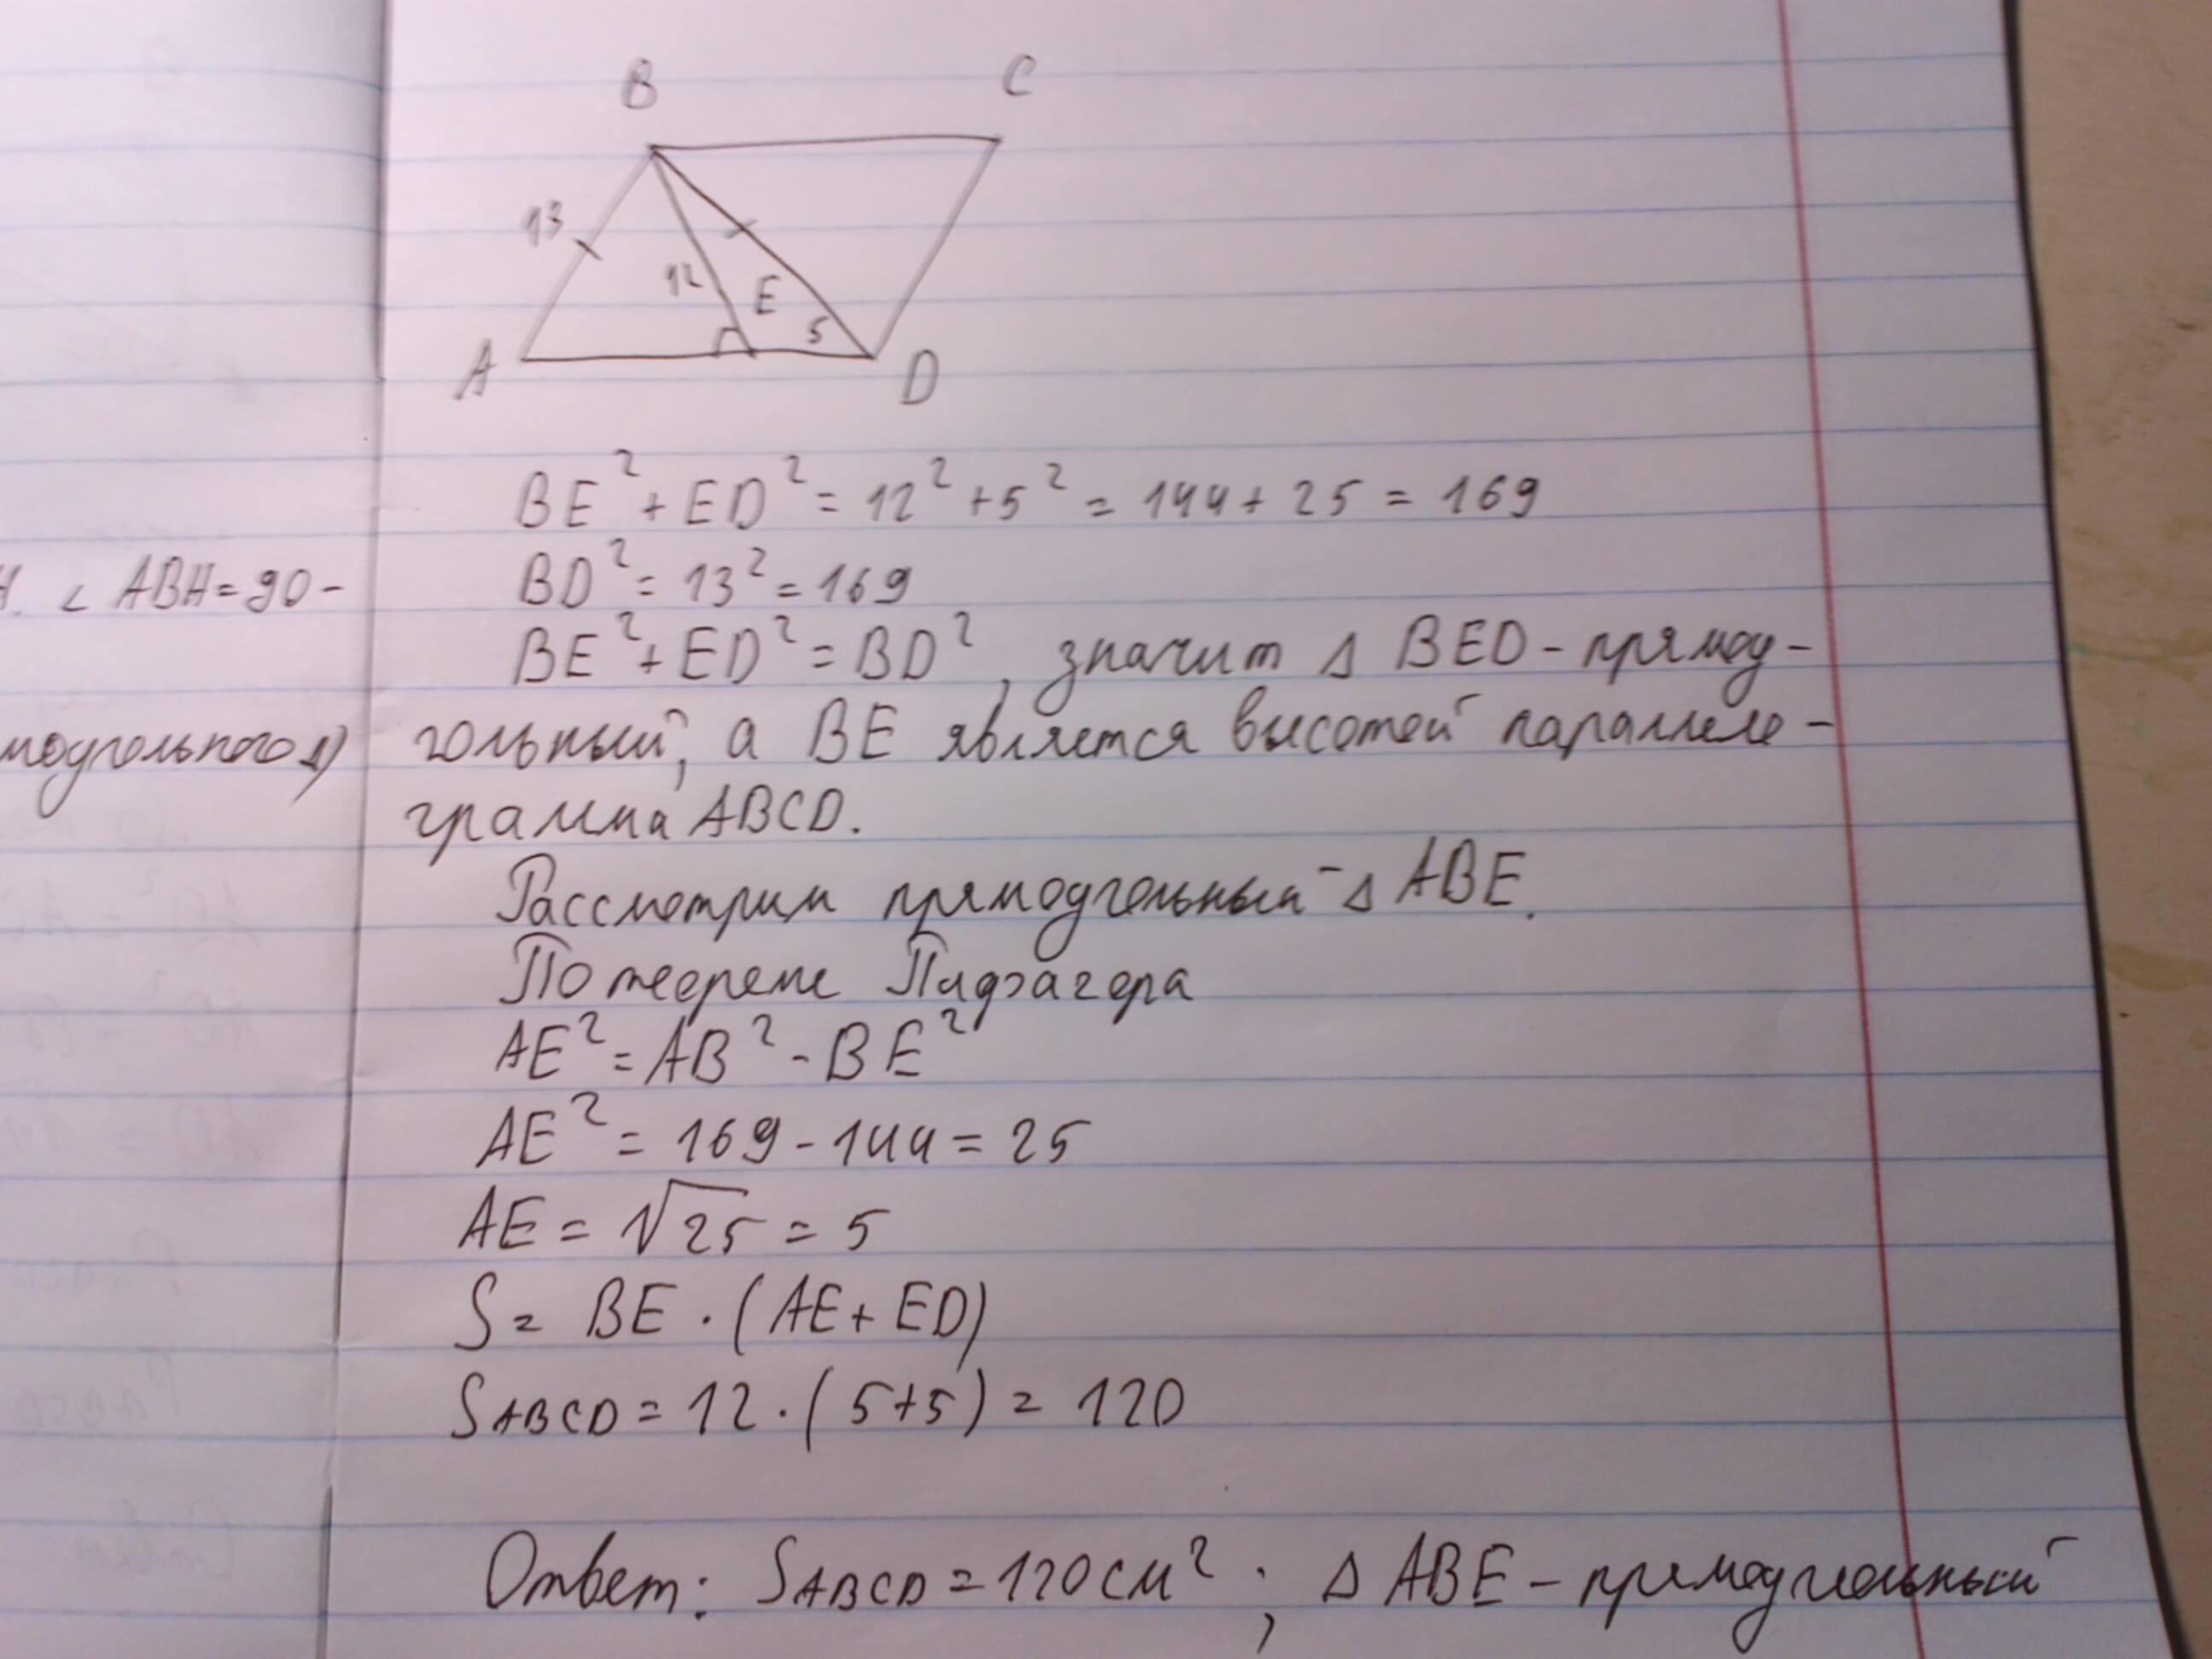 B C
13
12 E
5
A D
BE² + ED² = 12² + 5² = 144 + 25 = 169
∠ ABH = 90 -
BD² = 13² = 169
BE² + ED² = BD², значит Δ BED - прямоу-
моугольного Δ)
гольный, а BE является высотой параллело-
грамма ABCD.
Рассмотрим прямоугольный Δ ABE.
По теореме Пифагора
AE² = AB² - BE²
AE² = 169 - 144 = 25
AE = √25 = 5
S = BE · (AE + ED)
SABCD = 12 · (5+5) = 120
Ответ: SABCD = 120 см²; Δ ABE - прямоугольный